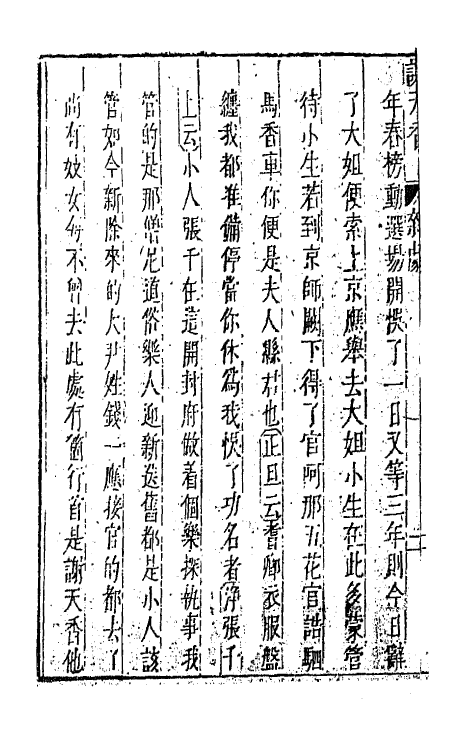 謝天香 雜劇 二
年春榜動選塲開悞了一日又等三年則今日辭
了大姐便索上京應舉去大姐小生在此多蒙管
待小生若到京師闕下得了官呵那五花官誥駟
馬香車你便是夫人縣君也正旦云耆卿衣服盤
纏我都准備停當你休爲我悞了功名者淨張千
上云小人張千在這開封府做着個樂探執事我
管的是那僧尼道俗樂人迎新送舊都是小人該
管如今新除來的大尹姓錢一應接官的都去了
尚有妓女每不曾去此處有箇行首是謝天香他